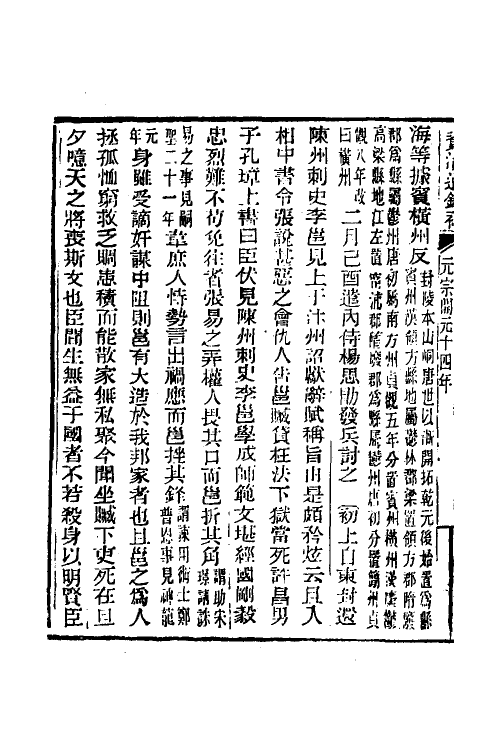 資治通鑑卷 元宗開元十四年
海等據賓橫州反封陵本山峒唐世以漸開拓乾元後始置爲縣
賓州漢領方縣地屬鬱林郡梁置領方郡隋廢
郡爲縣屬鬱州唐初屬南方州貞觀五年分置賓州橫州漢廣鬱
高梁縣地江左置甯浦郡隋廢郡爲縣屬鬱州唐初分置簡州貞
觀八年改
曰橫州二月己酉遣內侍楊思勗發兵討之 初上自東封還
陳州刺史李邕見上于汴州詔獻辭賦稱旨由是頗矜炫云且入
相中書令張說甚惡之會仇人告邕贓貸枉法下獄當死許昌男
子孔璋上書曰臣伏見陳州刺史李邕學成師範文堪經國剛毅
忠烈難不苟免往者張易之弄權人畏其口而邕折其角謂助宋
璟請誅
易之事見嗣
聖二十一年韋庶人恃勢言出禍應而邕挫其鋒謂諫用術士鄭
普思事見神龍
元
年身雖受謫奸謀中阻則邕有大造於我邦家者也且邕之爲人
拯孤恤窮救乏賙惠積而能散家無私聚今聞坐贓下吏死在旦
夕噫天之將喪斯文也臣聞生無益于國者不若殺身以明賢臣